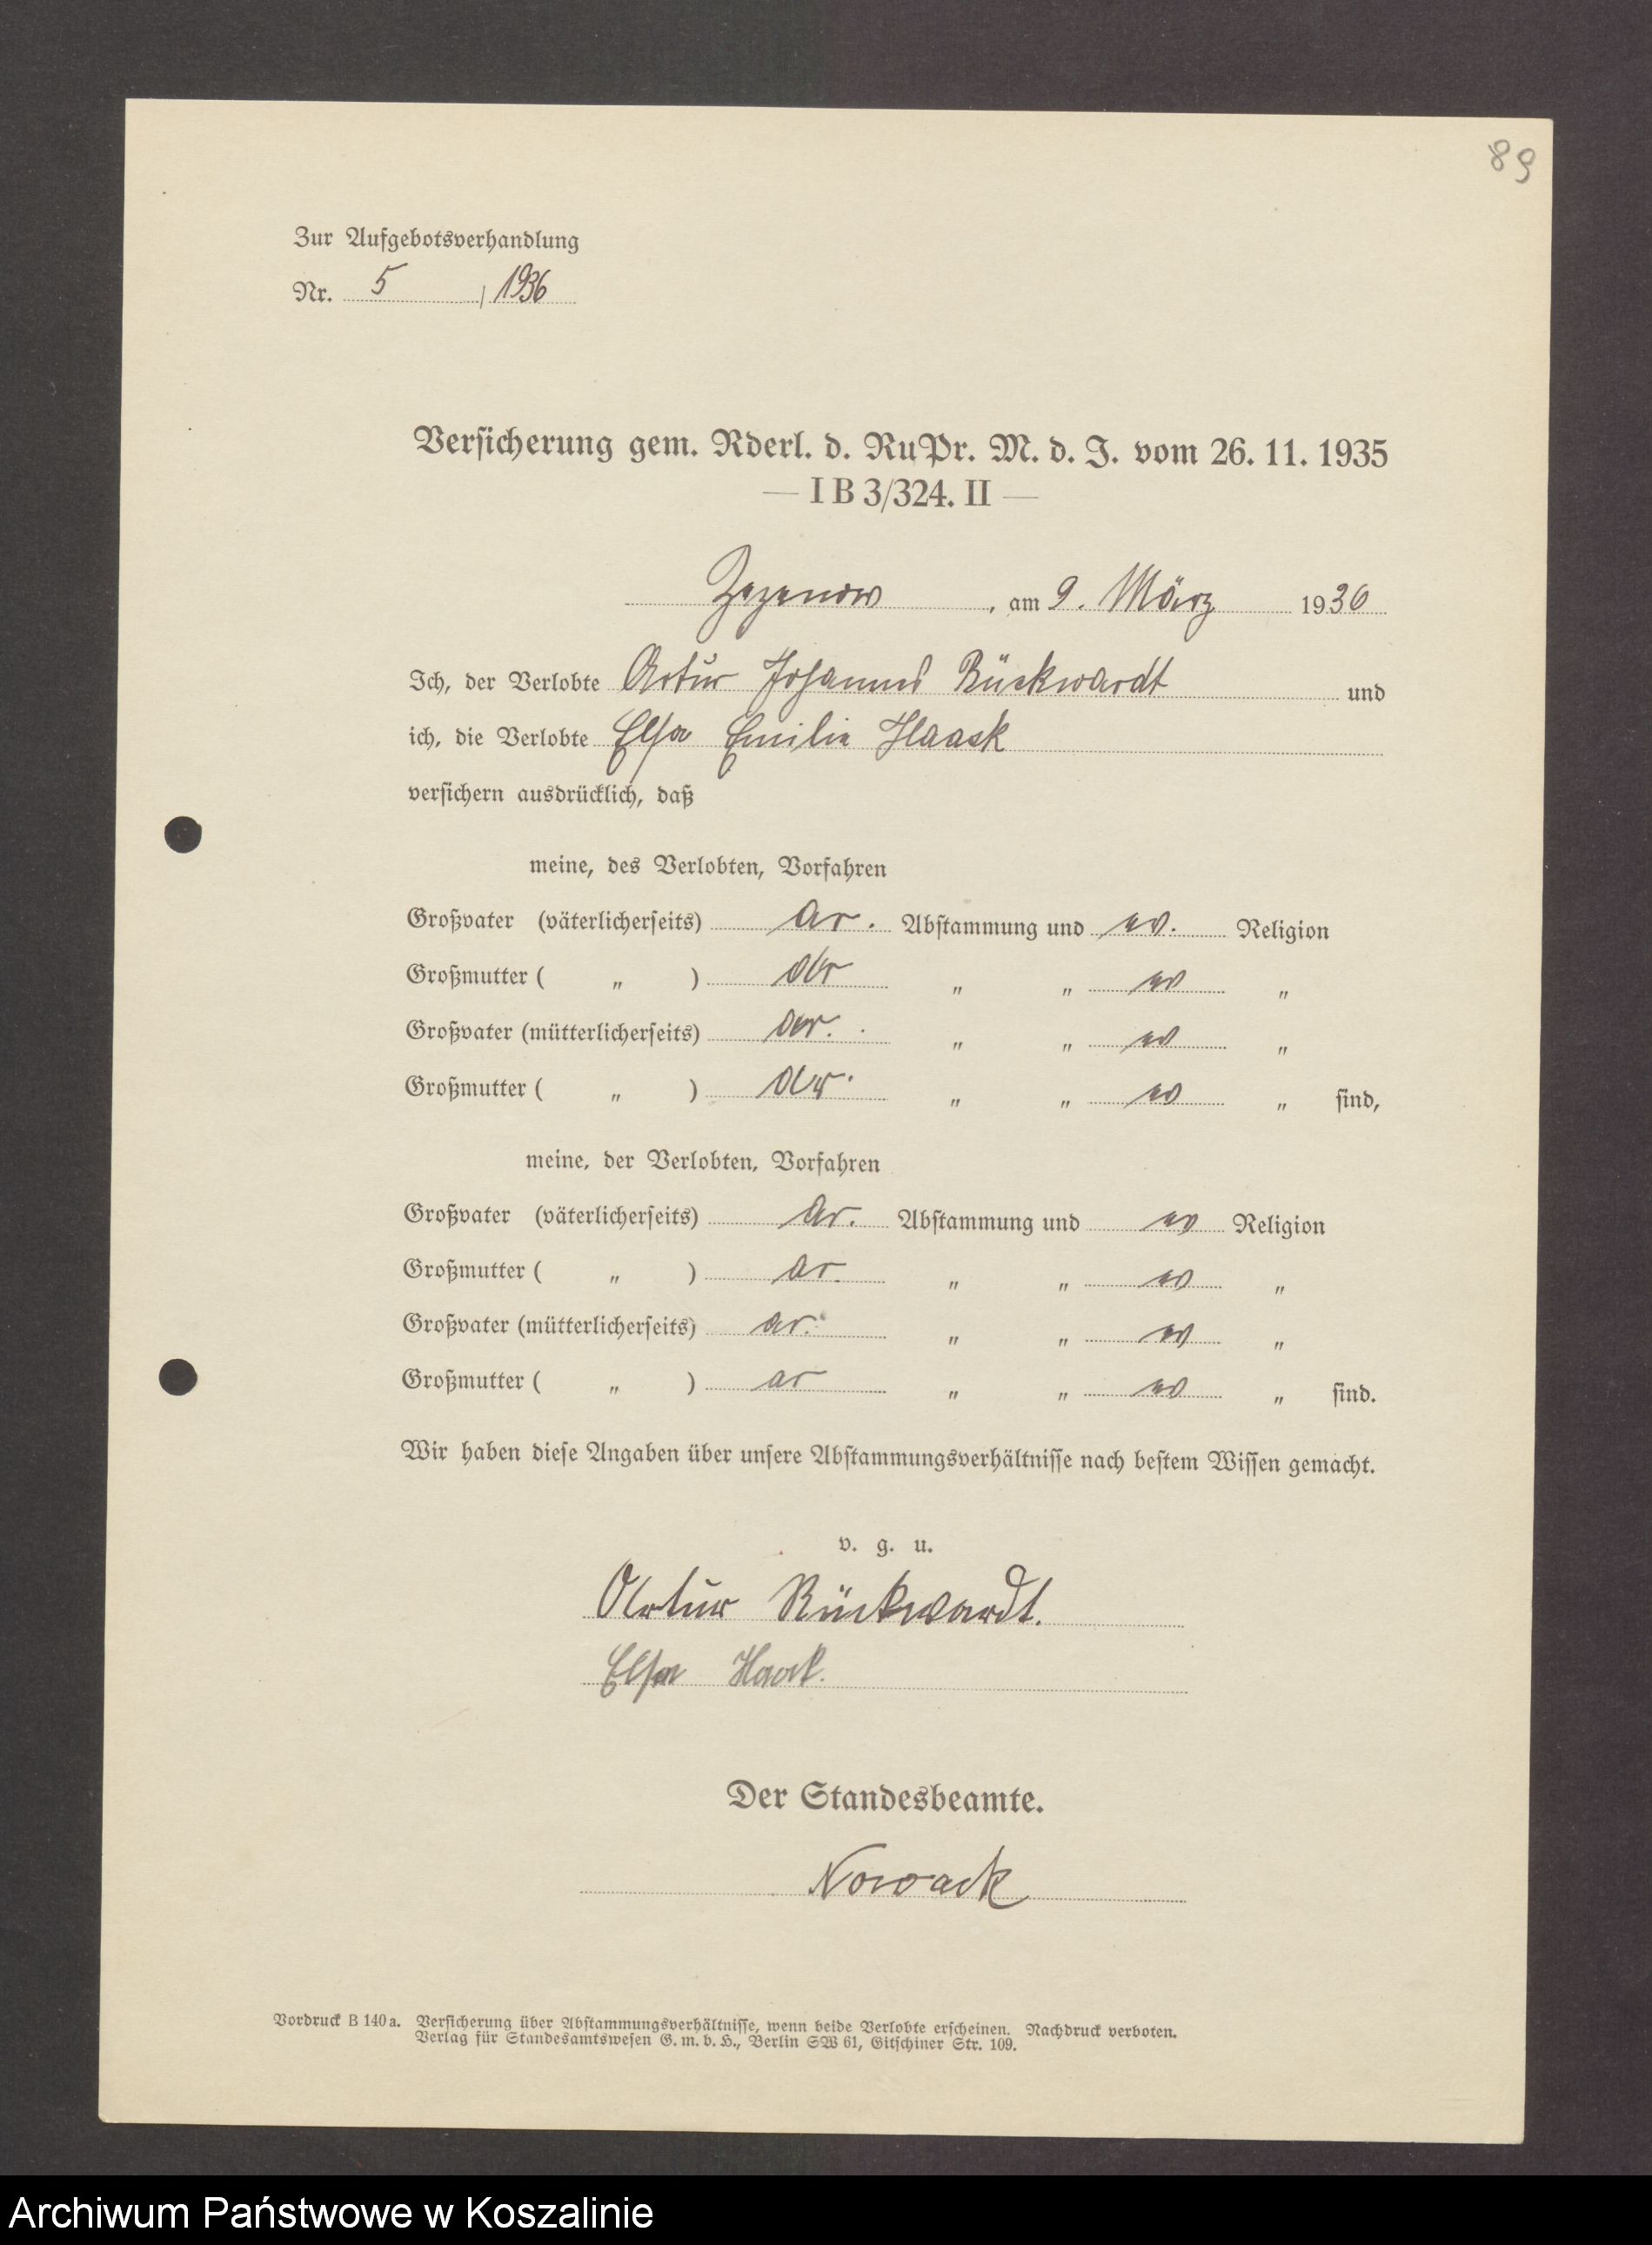 89
Zur Aufgebotsverhandlung
Nr. 5 / 1936
Versicherung gem. Rderl. d. RuPr. M. d. J. vom 26. 11. 1935
— I B 3/324. II —
Zezenow, am 9. März 1936
Ich, der Verlobte Artur Johannes Rückwardt und
ich, die Verlobte Elsa Emilie Haack
versichern ausdrücklich, daß
meine, des Verlobten, Vorfahren
Großvater (väterlicherseits) ar. Abstammung und ev. Religion
Großmutter ( „ ) ar „ „ ev „
Großvater (mütterlicherseits) ar. „ „ ev „
Großmutter ( „ ) ar. „ „ ev „ sind,
meine, der Verlobten, Vorfahren
Großvater (väterlicherseits) ar. Abstammung und ev Religion
Großmutter ( „ ) ar. „ „ ev „
Großvater (mütterlicherseits) ar. „ „ ev „
Großmutter ( „ ) ar „ „ ev „ sind.
Wir haben diese Angaben über unsere Abstammungsverhältnisse nach bestem Wissen gemacht.
v. g. u.
Artur Rückwardt.
Elsa Haack.
Der Standesbeamte.
Nowack
Vordruck B 140a. Versicherung über Abstammungsverhältnisse, wenn beide Verlobte erscheinen. Nachdruck verboten.
Verlag für Standesamtswesen G. m. b. H., Berlin SW 61, Gitschiner Str. 109.
Archiwum Państwowe w Koszalinie